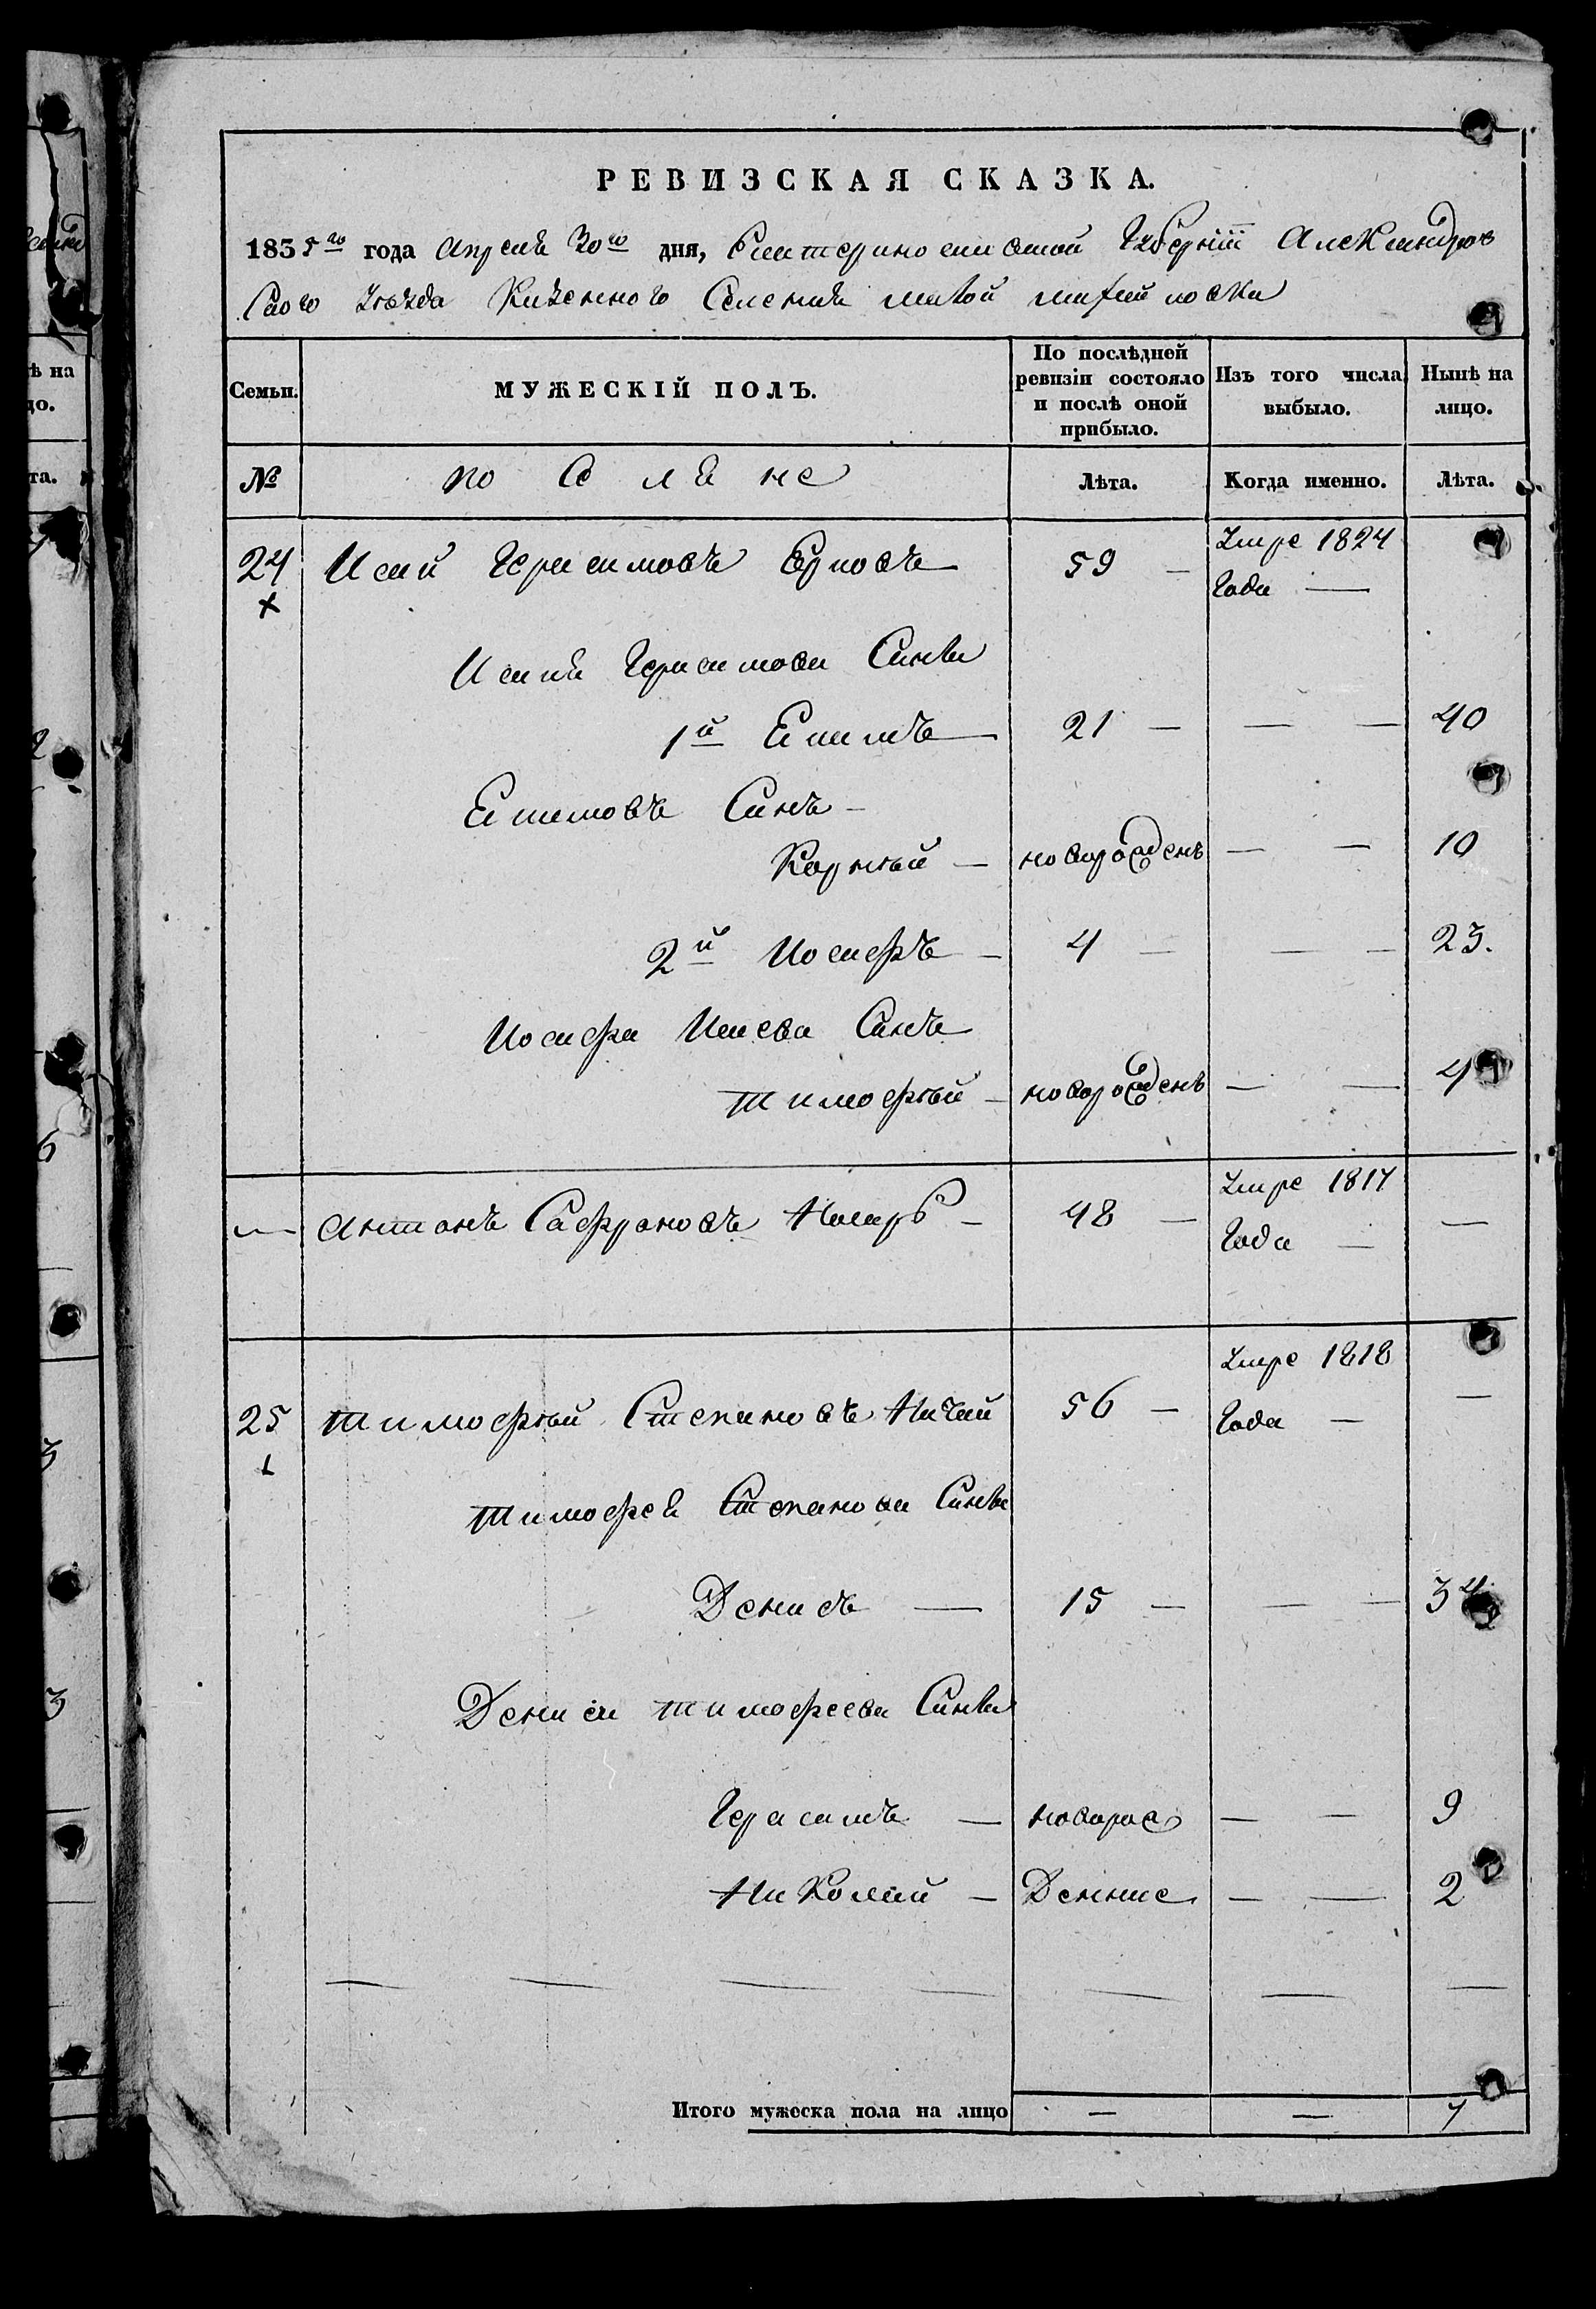 РЕВИЗСКАЯ СКАЗКА.
1835го года Апреля 30го дня, Екатеринославской Губерніи Александров
скаго Уѣзда Казеннаго Селенія малой михайловки
Семьи. МУЖЕСКІЙ ПОЛЪ. По послѣдней ревизіи состояло и послѣ оной прибыло. Изъ того числа выбыло. Нынѣ на лицо.
№ поселяне Лѣта. Когда именно. Лѣта.
24 Исай Герасимовъ 59 — Умре 1824
Года —
Исая Герасимова Сыны
1й Ефимъ — 21 — — — 40
Ефимовъ Сынъ —
Корнѣй — новорожденъ — — 10
2й Иосифъ — 4 — — — 23.
Иосифа Исаева Сынъ
тимофѣй — новорожденъ — — 4
— Антонъ Сафроновъ — 48 — Умре 1817 —
Года —
25 тимофѣй Степановъ 56 — Умре 1818 —
Года —
тимофея Степанова Сыны
Денисъ — 15 — — — 34
Дениса тимофеева Сыны
Герасимъ — новорож — — 9
Николай — Денные — — 2
Итого мужеска пола на лицо — — 7
ѣ на
до.
та.